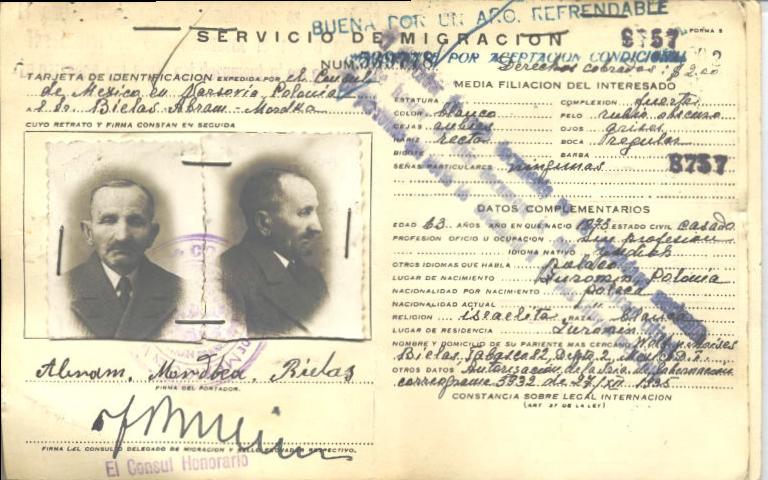 BUENA POR UN AÑO. REFRENDABLE
SERVICIO DE MIGRACION
8757
FORMA 5
NUM. 
POR ACEPTACION CONDICIONAL
Derechos cobrados: $2.00
TARJETA DE IDENTIFICACION EXPEDIDA POR el Consul
de Mexico en Varsovia, Polonia
a Sr. Bielas Abram-Mordka
CUYO RETRATO Y FIRMA CONSTAN EN SEGUIDA
Abram Mordka Bielas
FIRMA DEL PORTADOR.
FIRMA DEL CONSUL O DELEGADO DE MIGRACION Y SELLO RESPECTIVO.
El Consul Honorario
MEDIA FILIACION DEL INTERESADO
ESTATURA COMPLEXION fuerte
COLOR blanco PELO rubio obscuro
CEJAS OJOS grises
NARIZ recta BOCA regular
BIGOTE BARBA
SEÑAS PARTICULARES ningunas
8757
DATOS COMPLEMENTARIOS
EDAD 63 AÑOS AÑO EN QUE NACIO 1873 ESTADO CIVIL casado
PROFESION OFICIO U OCUPACION sin profesion
IDIOMA NATIVO
OTROS IDIOMAS QUE HABLA Polaco
LUGAR DE NACIMIENTO Polonia
NACIONALIDAD POR NACIMIENTO polaca
NACIONALIDAD ACTUAL "
RELIGION israelita RAZA blanca
LUGAR DE RESIDENCIA
NOMBRE Y DOMICILIO DE SU PARIENTE MAS CERCANO Moises
Bielas, Tabasco 82, Depto. 2, Mexico D.F.
OTROS DATOS Autorización de la Sría. de Gobernación
correograma 5932 de 27/XII 1935
CONSTANCIA SOBRE LEGAL INTERNACION
(ART 27 DE LA LEY)